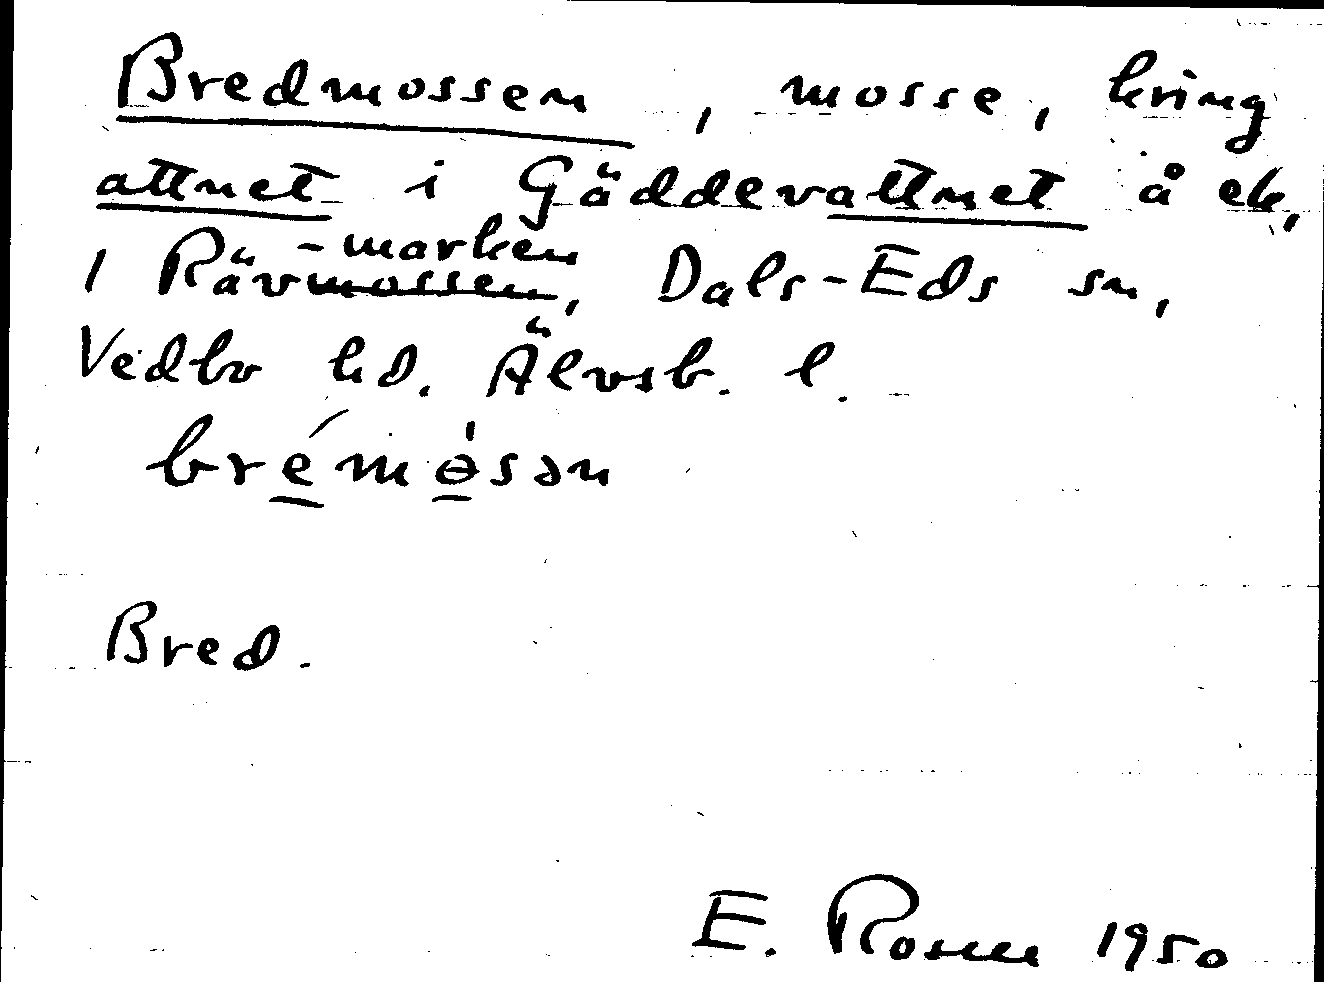 Bredmossen, mosse, kring
attnet i Gäddevattnet å ek,
i Räv-marken mossen, Dals-Eds sn,
Vedbo hd. Älvsb. l.
brémɵ̀sən
Bred.
E. Rosell 1950